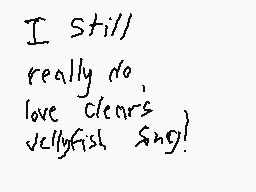 I still
really do,
love clear's
Jellyfish Song!